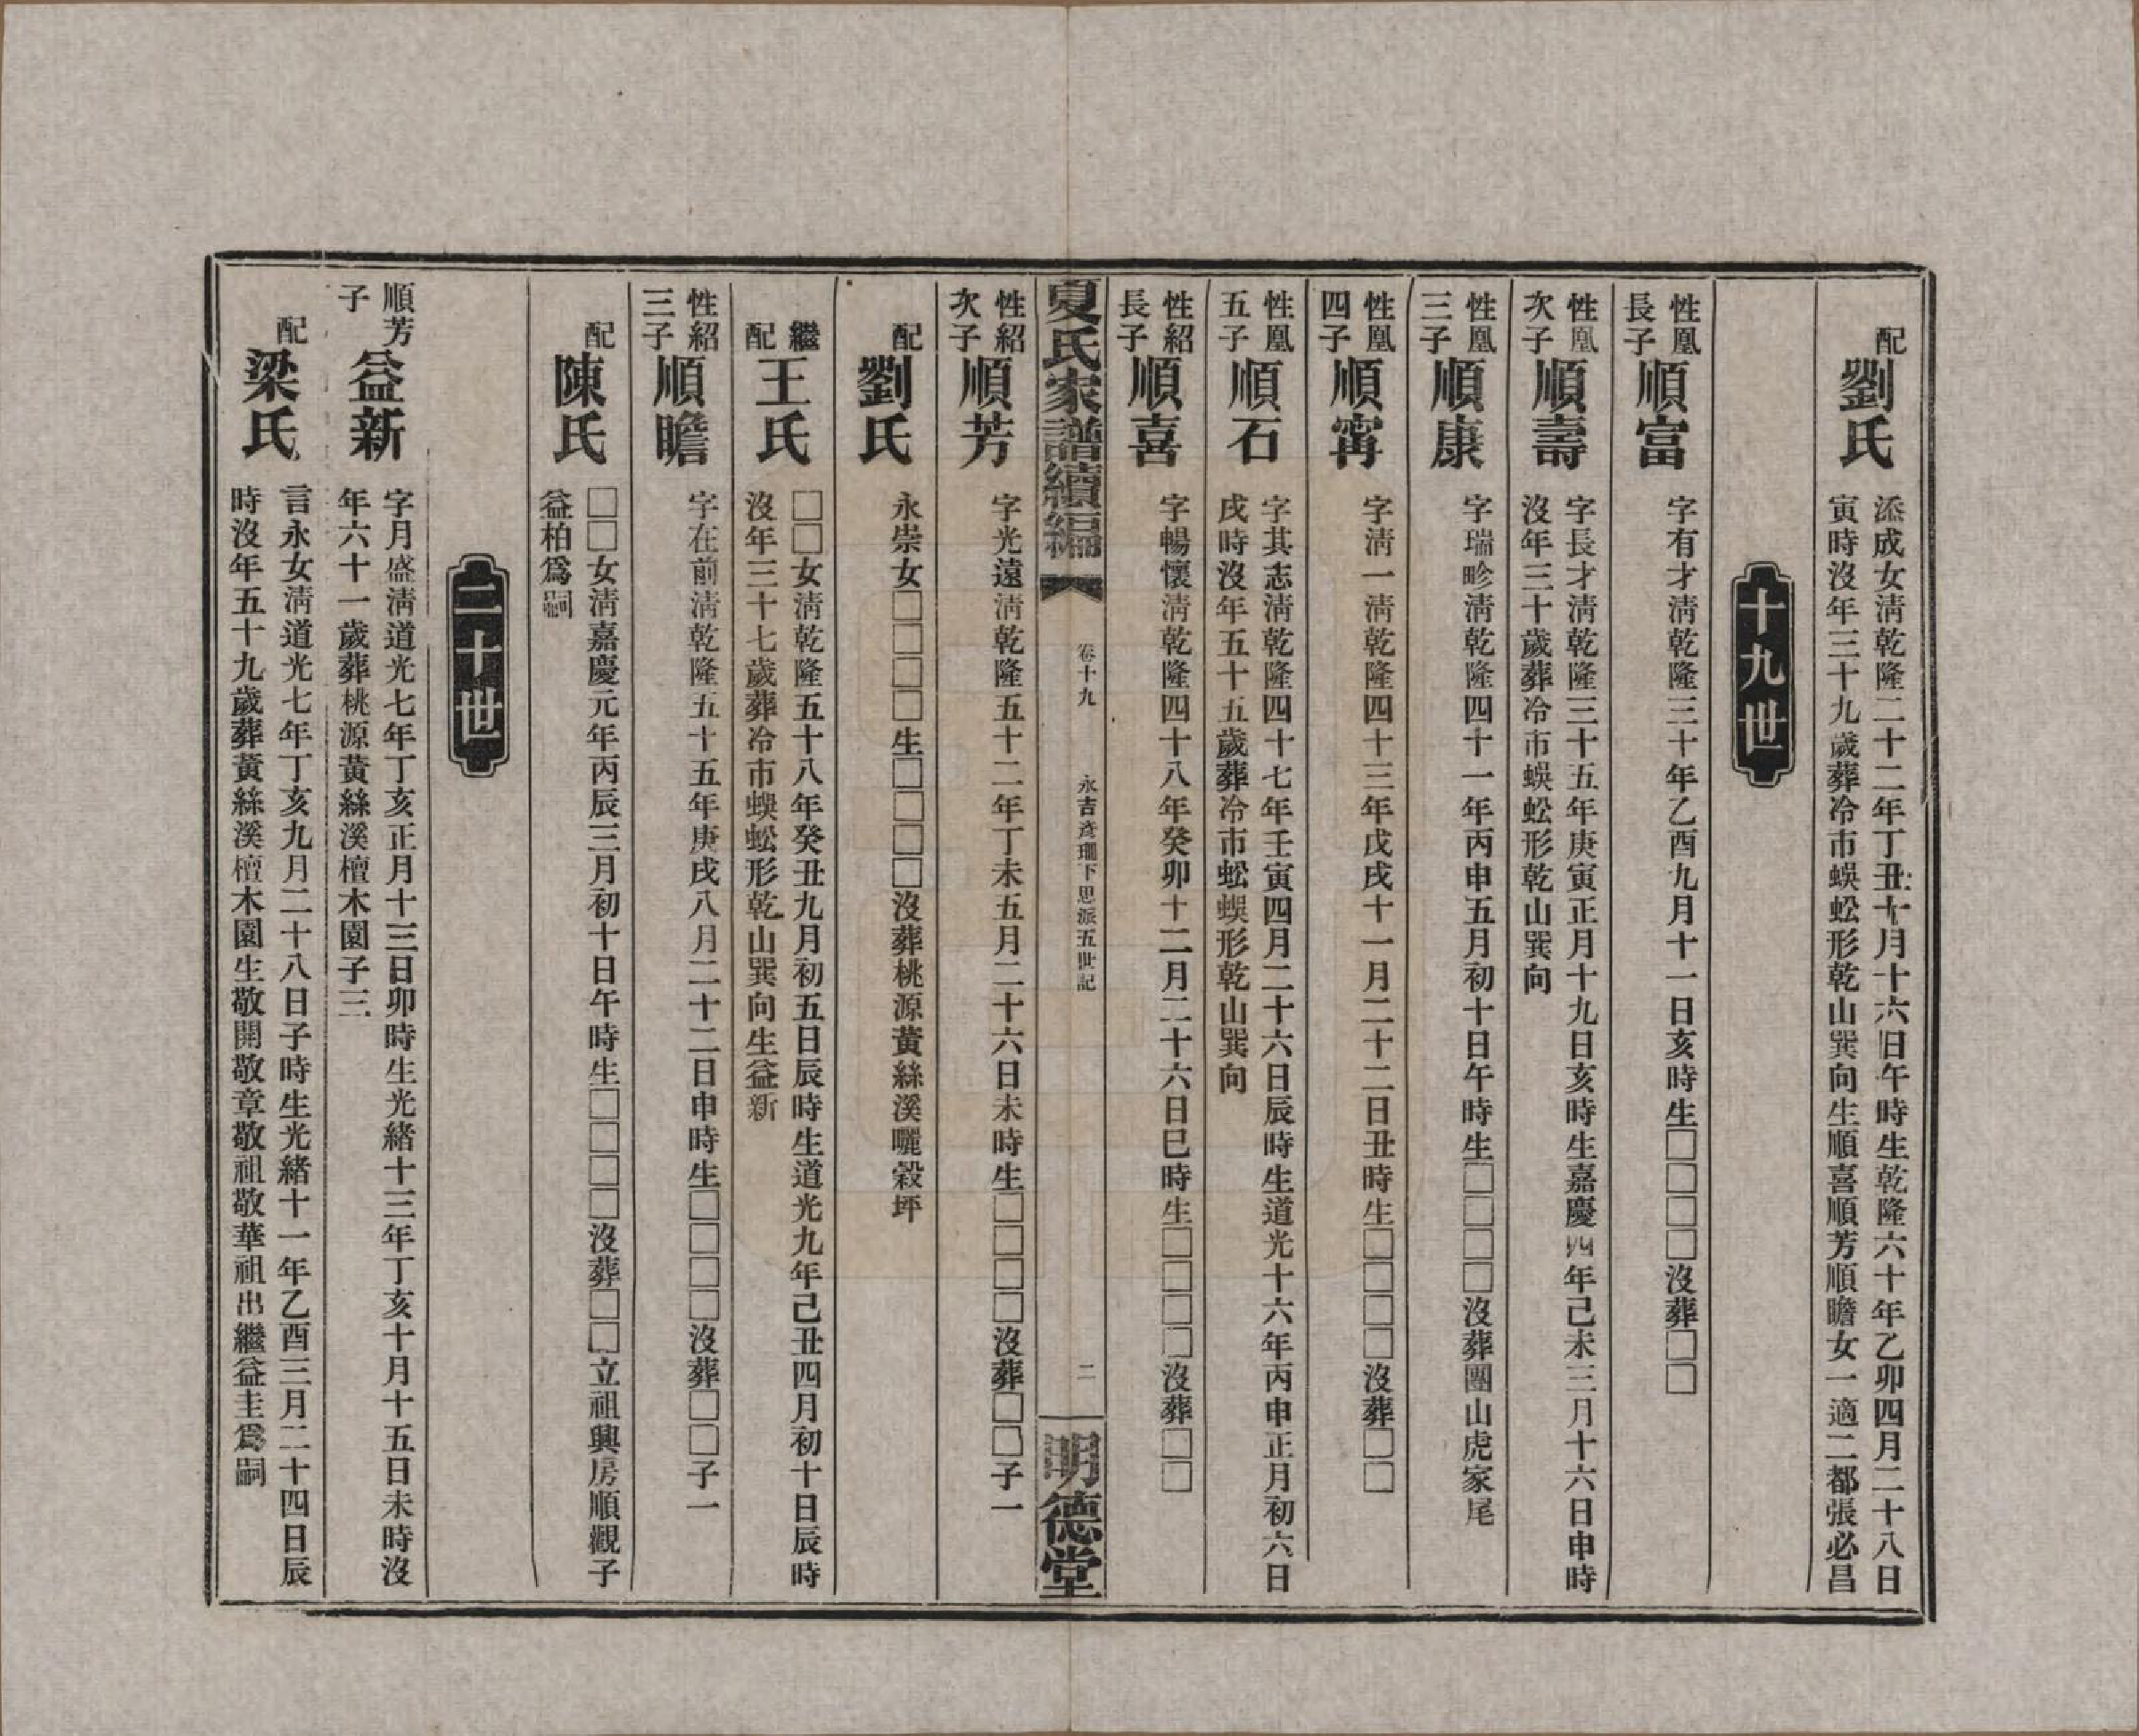 配
劉氏
添成女淸乾隆二十二年丁丑十月十六日午時生乾隆六十年乙卯四月二十八日
寅時沒年三十九歲葬冷市蜈蚣形乾山巽向生順喜順芳順瞻女一適二都張必昌
十九世
性凰
長子
順富
字有才淸乾隆三十年乙酉九月十一日亥時生□□□□沒葬□□
性凰
次子
順壽
字長才淸乾隆三十五年庚寅正月十九日亥時生嘉慶四年己未三月十六日申時
沒年三十歲葬冷市蜈蚣形乾山巽向
性凰
三子
順康
字瑞畛淸乾隆四十一年丙申五月初十日午時生□□□□沒葬團山虎家尾
性凰
四子
順甯
字淸一淸乾隆四十三年戊戌十一月二十二日丑時生□□□□沒葬□□
性凰
五子
順石
字其志淸乾隆四十七年壬寅四月二十六日辰時生道光十六年丙申正月初六日
戌時沒年五十五歲葬冷市蚣蜈形乾山巽向
性紹
長子
順喜
字暢懷淸乾隆四十八年癸卯十二月二十六日巳時生□□□□沒葬□□
夏氏家譜續編
卷十九
永吉彥瓓下思派五世記
二
明德堂
性紹
次子
順芳
字光遠淸乾隆五十二年丁未五月二十六日未時生□□□□沒葬□□子一
配
劉氏
永崇女□□□□生□□□□沒葬桃源黃絲溪曬穀坪
繼
配
王氏
□□女淸乾隆五十八年癸丑九月初五日辰時生道光九年己丑四月初十日辰時
沒年三十七歲葬冷市蜈蚣形乾山巽向生益新
性紹
三子
順瞻
字在前淸乾隆五十五年庚戌八月二十二日申時生□□□□沒葬□□子一
配
陳氏
□□女淸嘉慶元年丙辰三月初十日午時生□□□□沒葬□□立祖興房順觀子
益柏爲嗣
二十世
順芳
子
益新
字月盛淸道光七年丁亥正月十三日卯時生光緒十三年丁亥十月十五日未時沒
年六十一歲葬桃源黃絲溪檀木園子三
配
梁氏
言永女淸道光七年丁亥九月二十八日子時生光緒十一年乙酉三月二十四日辰
時沒年五十九歲葬黃絲溪檀木園生敬開敬章敬祖敬華祖出繼益圭爲嗣